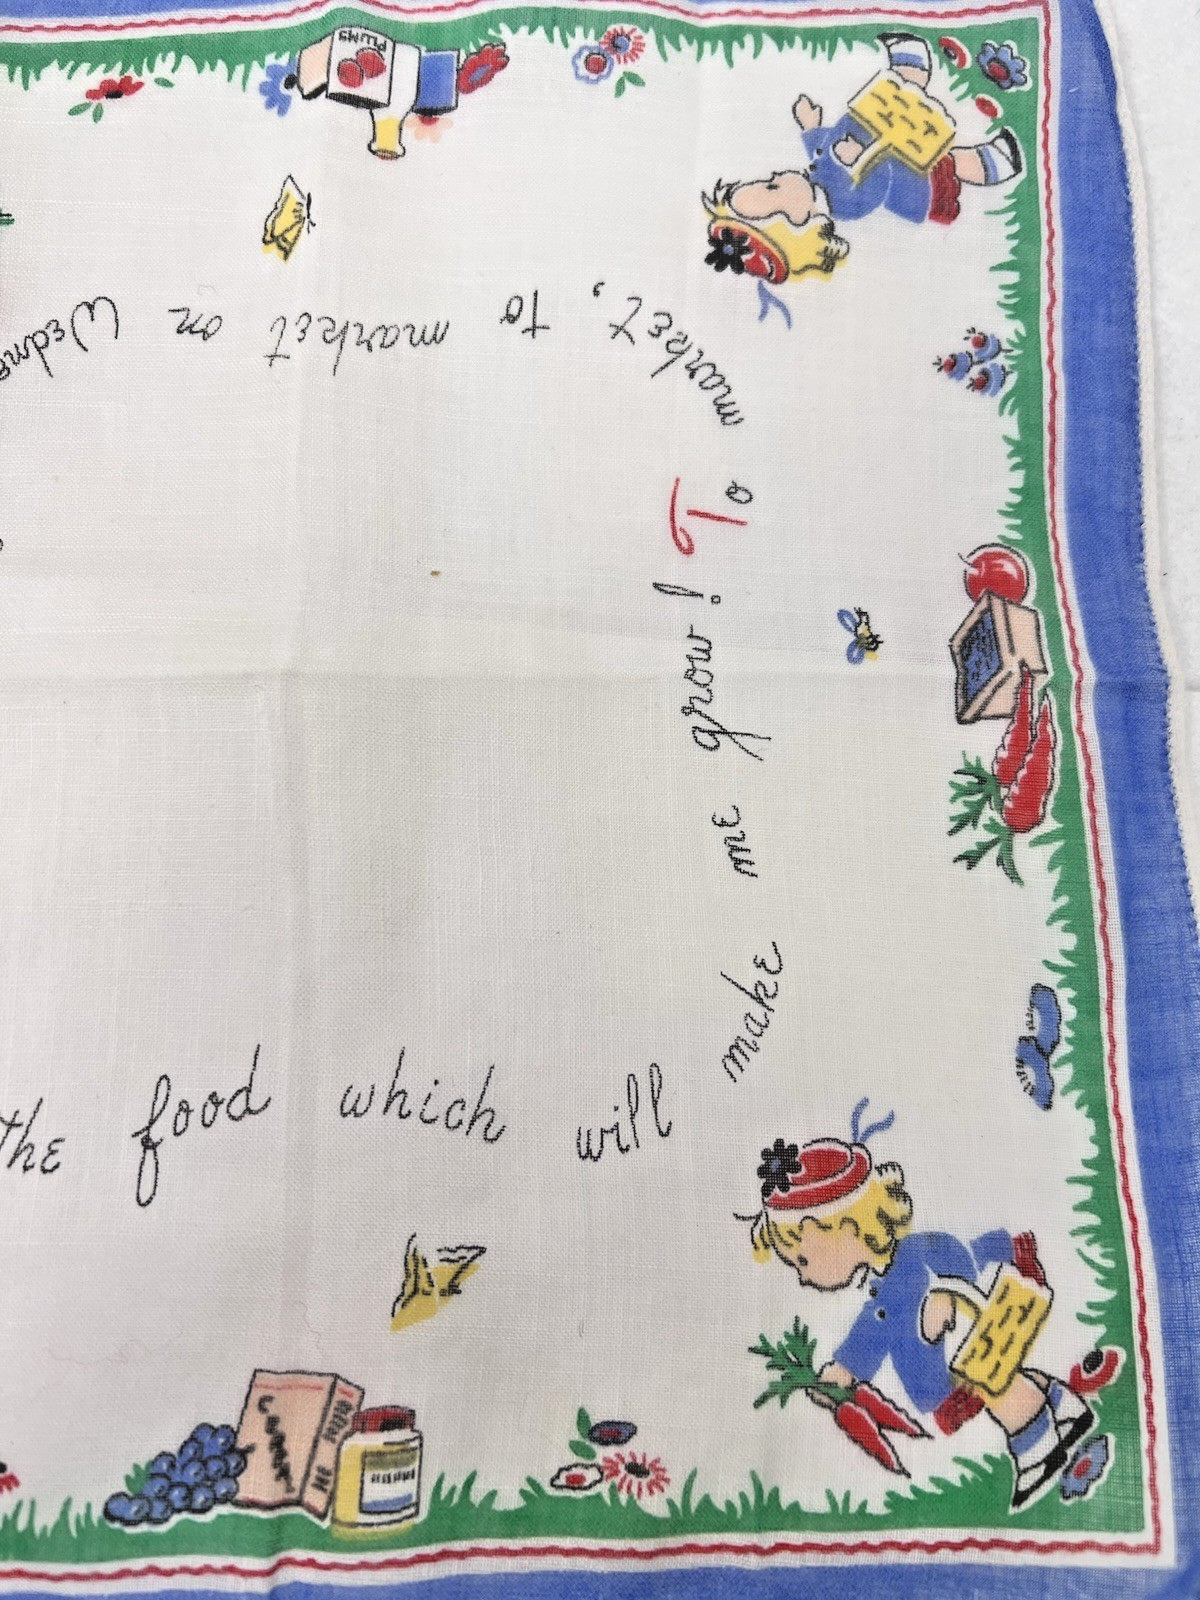 To market, to market on Wedne
the food which will make me grow!
PLUMS